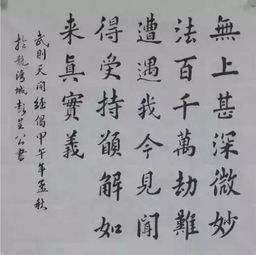 無上甚深微妙
法百千萬劫難
遭遇我今見聞
得受持願解如
来真實義
武則天開經偈甲午年孟秋
於龍湾城彭
書